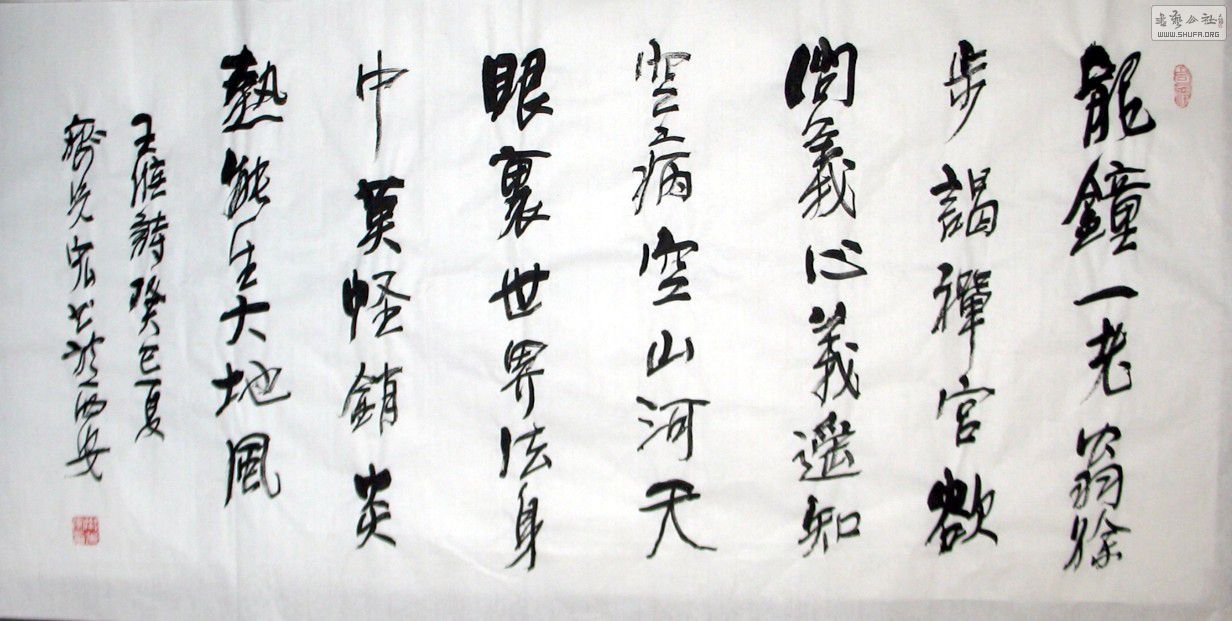 龍鐘一老翁徐
步謁禪宮欲
問義心義遙知
空病空山河天
眼裏世界法身
中莫怪銷炎
熱能生大地風
王維詩癸巳夏
書於西安
书艺公社
WWW.SHUFA.ORG